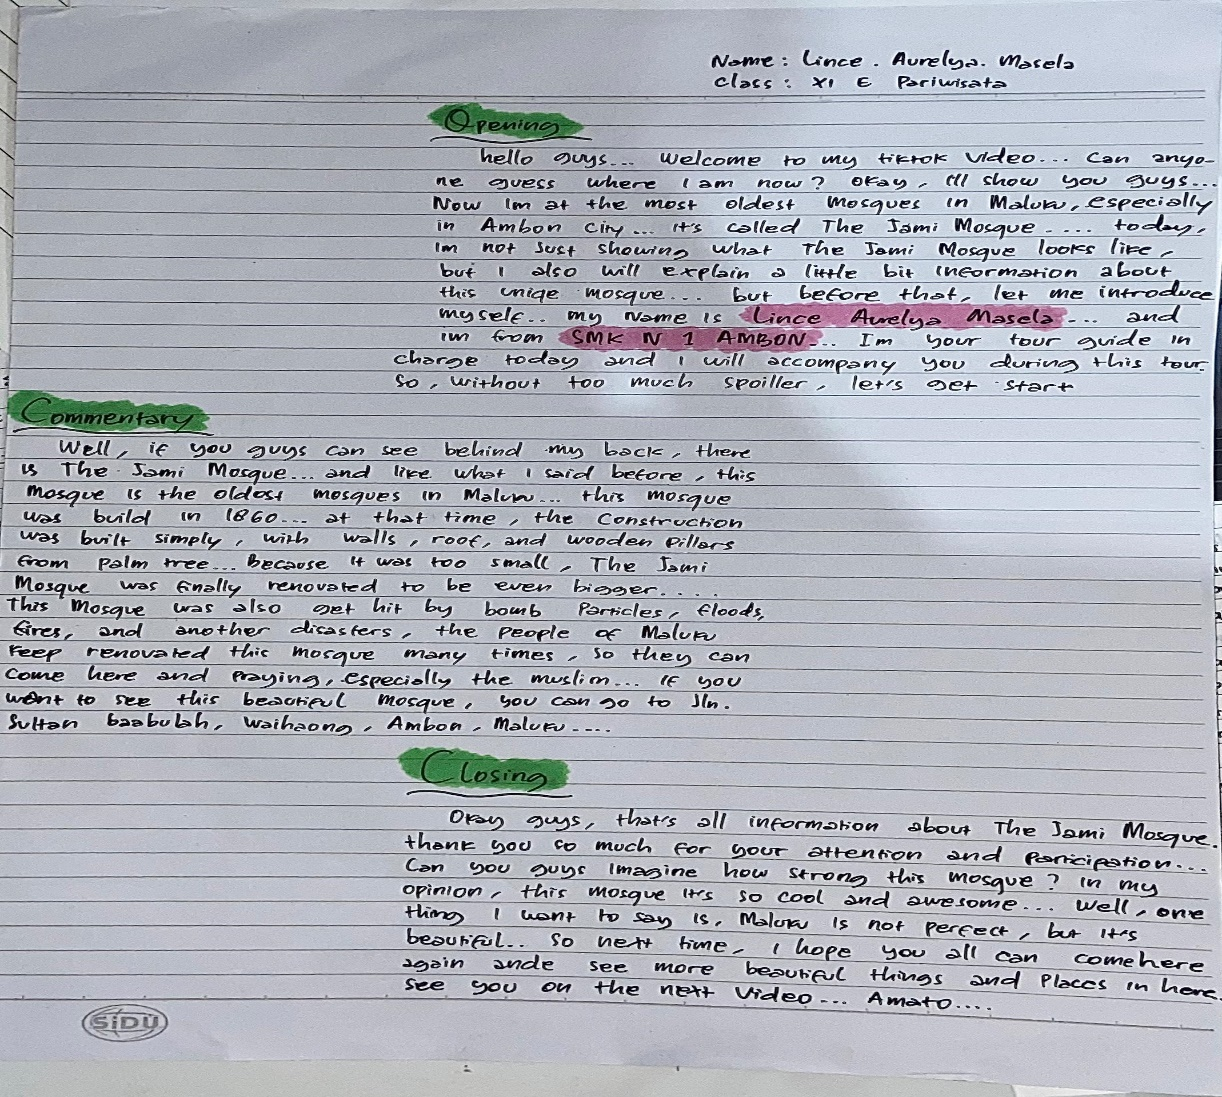 Name : Lince . Aurelya. Masela
Class : XI E Pariwisata
Opening
hello guys... Welcome to my tiktok Video... Can anyo-
ne guess where I am now? okay, I'll show you guys...
Now Im at the most oldest mosques in Maluku, especially
in Ambon City... it's called The Jami Mosque .... today,
Im not Just showing what The Jami Mosque looks like,
but I also will explain a little bit information about
this uniqe mosque... but before that, let me introduce
myself.. my name is Lince Aurelya Masela ... and
im from SMK N 1 AMBON... I'm your tour guide in
charge today and I will accompany you during this tour.
So, without too much spoiller, let's get start
Commentary
Well, if you guys can see behind my back, there
is The Jami Mosque... and like what I said before, this
mosque is the oldest mosques in Maluku... this mosque
was build in 1860... at that time, the Construction
was built simply, with walls, roof, and wooden pillars
from palm tree... Because it was too small, The Jami
Mosque was finally renovated to be even bigger....
This Mosque was also get hit by bomb particles, floods,
fires, and another disasters, the people of Maluku
keep renovated this mosque many times, so they can
Come here and praying, especially the muslim... If you
want to see this beautiful mosque, you can go to Jln.
Sultan baabulah, Waihaong, Ambon, Maluku....
Closing
Okay guys, that's all information about The Jami Mosque.
thank you so much for your attention and participation...
Can you guys imagine how strong this mosque? in my
opinion, this mosque it's so cool and awesome... Well, one
thing I want to say is, Maluku is not perfect, but it's
beautiful.. So next time, I hope you all can comehere
again ande see more beautiful things and places in here.
see you on the next Video... Amato....
SiDU